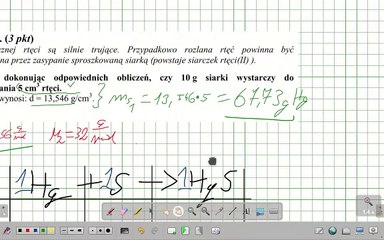 . (3 pkt)
cznej rtęci są silnie trujące. Przypadkowo rozlana rtęć powinna być
na przez zasypanie sproszkowaną siarką (powstaje siarczek rtęci(II) ).
dokonując odpowiednich obliczeń, czy 10 g siarki wystarczy do
ania 5 cm³ rtęci.
wynosi: d = 13,546 g/cm³. } ms₁ = 13,546·5 = 67,73g Hg
M₂ = 32 g/mol
1Hg + 1S → 1HgS